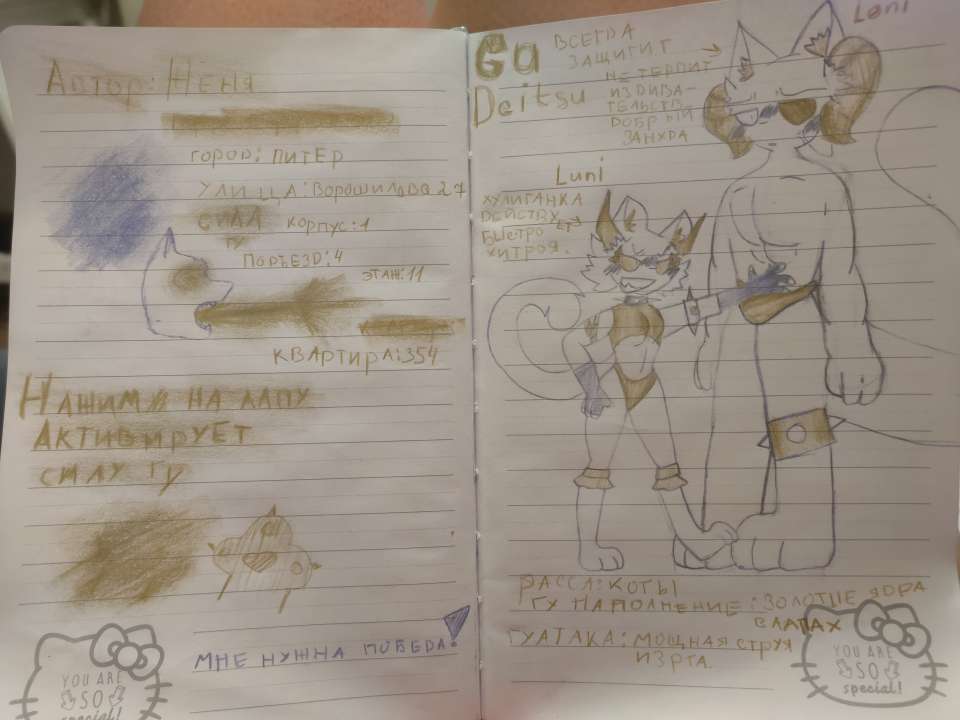 Автор: Неня
город: ПИТЕР
УЛИЦА: Ворошилова 27
СИЛА ГУ
КОРПУС: 1
ПОДЪЕЗД: 4
ЭТАЖ: 11
КВАРТИРА: 354
НАЖИМИ НА ЛАПУ
АКТИВИРУЕТ
СИЛУ ГУ
МНЕ НУЖНА ПОБЕДА!
YOU ARE
SO
special!
Gu
Deitsu
ВСЕГДА
ЗАЩИТИТ
НЕ ТЕРПИТ
ИЗДИВА-
ТЕЛЬСТВ
ДОБРЫЙ
ЗАНУДА
Loni
Luni
ХУЛИГАНКА
ДЕЙСТВУ
ЕТ
БЫСТРО
ХИТРОЯ.
РАССА: КОТЫ
ГУ НАПОЛНЕНИЕ: ЗОЛОТЫЕ ЯДРА
В ЛАПАХ
ГУ АТАКА: МОЩНАЯ СТРУЯ
ИЗ РТА.
YOU ARE
SO
special!